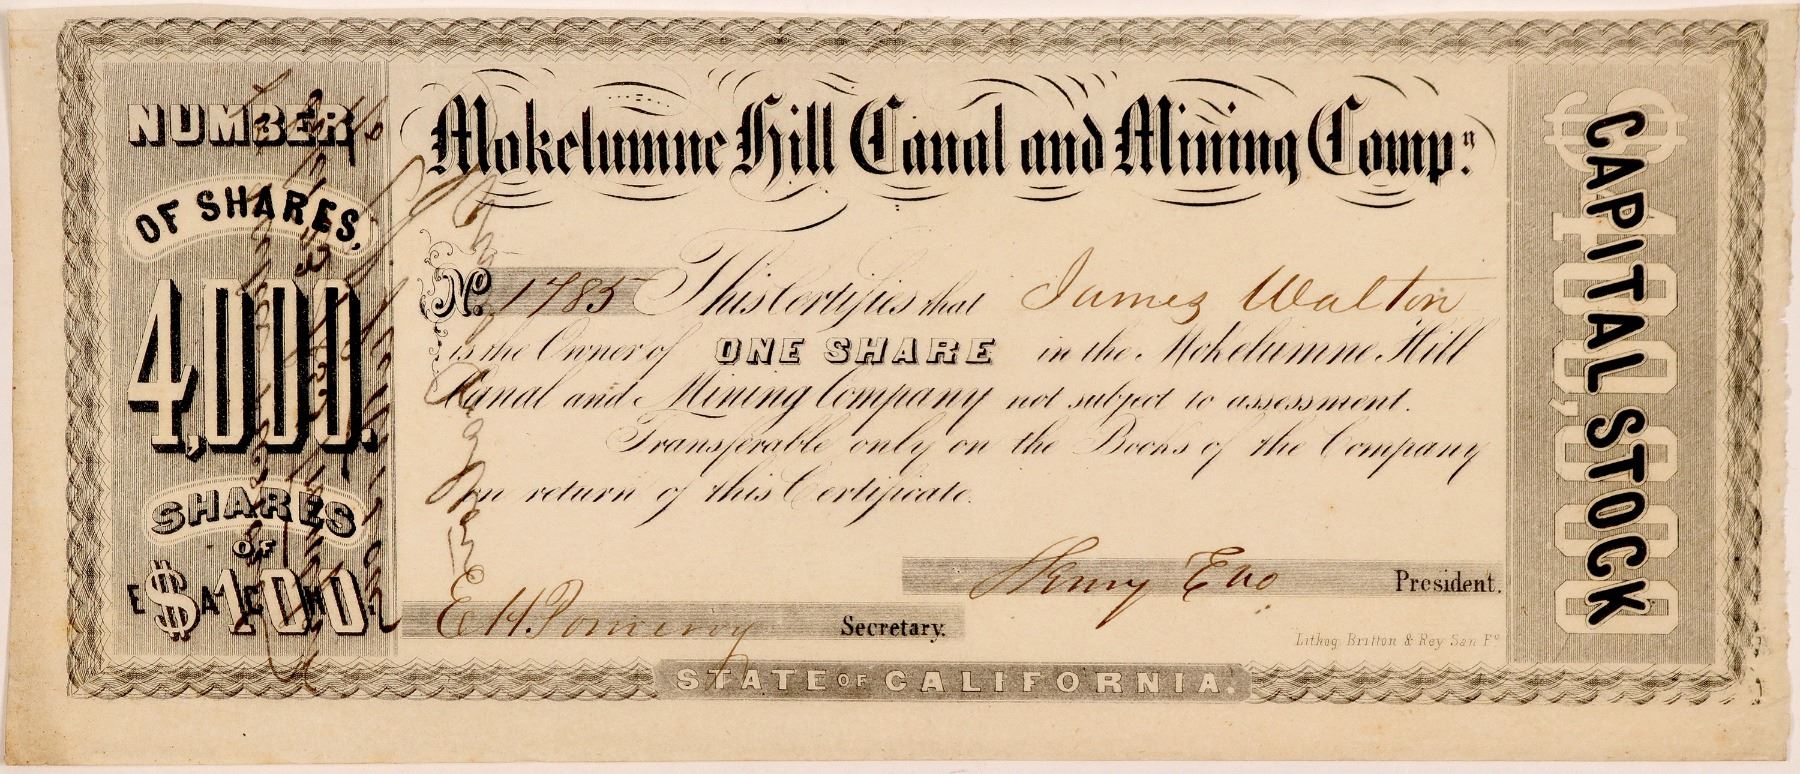 NUMBER
OF SHARES,
4,000.
SHARES
OF
$100.
EACH
Mokelumne Hill Canal and Mining Compy.
No. 1785 This Certifies that James Walton
is the Owner of ONE SHARE in the Mokelumne Hill
Canal and Mining Company not subject to assessment.
Transferable only on the Books of the Company
on return of this Certificate.
Henry Eno President.
E H. Pomeroy Secretary.
Lithog. Britton & Rey San Fo
STATE OF CALIFORNIA.
CAPITAL STOCK
$400,000